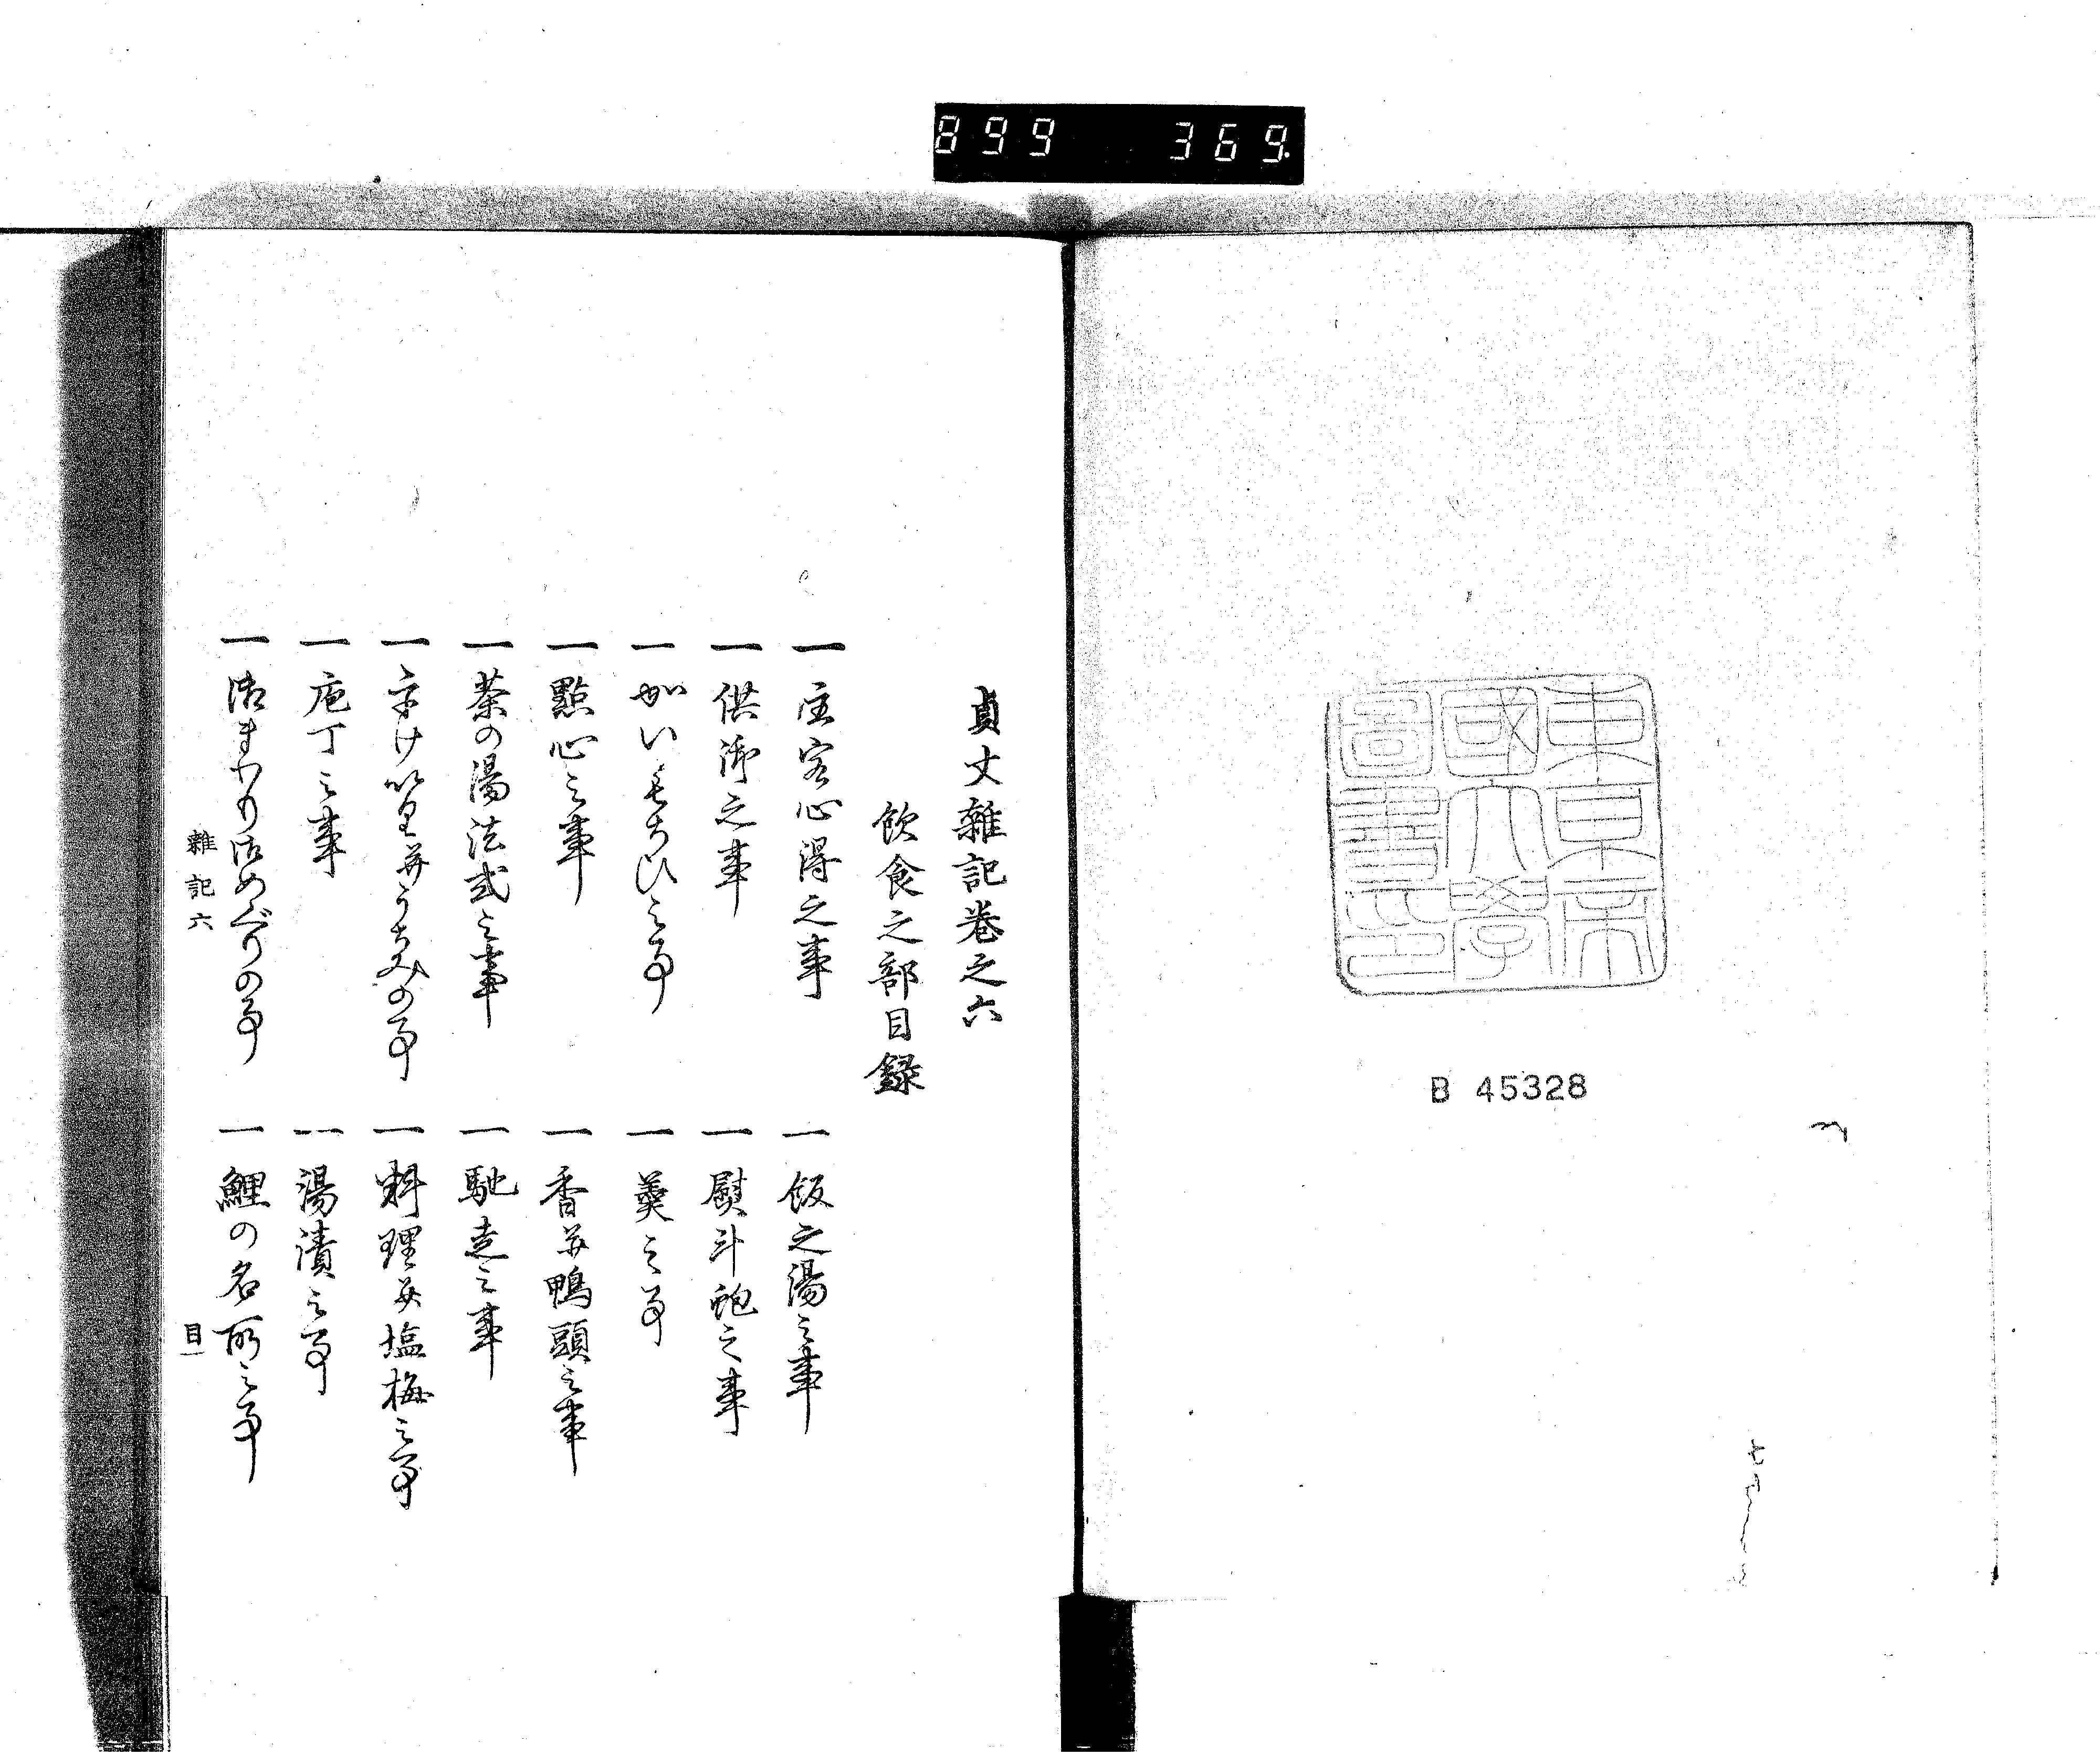 899 369
東京帝
國大學
圖書之印
B 45328
貞丈雜記巻之六
飲食之部目録
一 主客心得之事 一 飯之湯之事
一 供御之事 一 熨斗鮑之事
一 かいもちひ之事 一 羹之事
一 點心之事 一 香并鴨頭之事
一 茶の湯法式之事 一 馳走之事
一 うけいり并うちみの事 一 料理并塩梅之事
一 庖丁之事 一 湯漬之事
一 御まはり御めぐりの事 一 鯉の名所之事
雜記六 目一